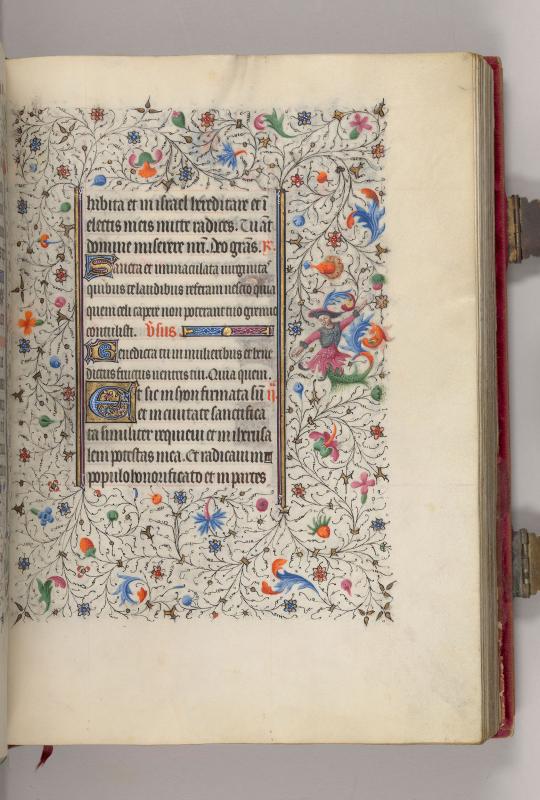 habita et in israel hereditare et ī
electis meis mitte radices. Tu aūt
domine miserere nr̄i. Deo grās. R.
Sancta et immaculata uirginita
quibus te laudibus referam nescio quia
quem celi capere non poterant tuo gremio
contulisti. v̄sus
Benedicta tu in mulieribus et bene
dictus fructus uentris tui. Quia quem.
Et sic in syon firmata sū ij
et in ciuitate sanctifica
ta similiter requieui et in iherusa
lem potestas mea. Et radicaui in
populo honorificato et in partes